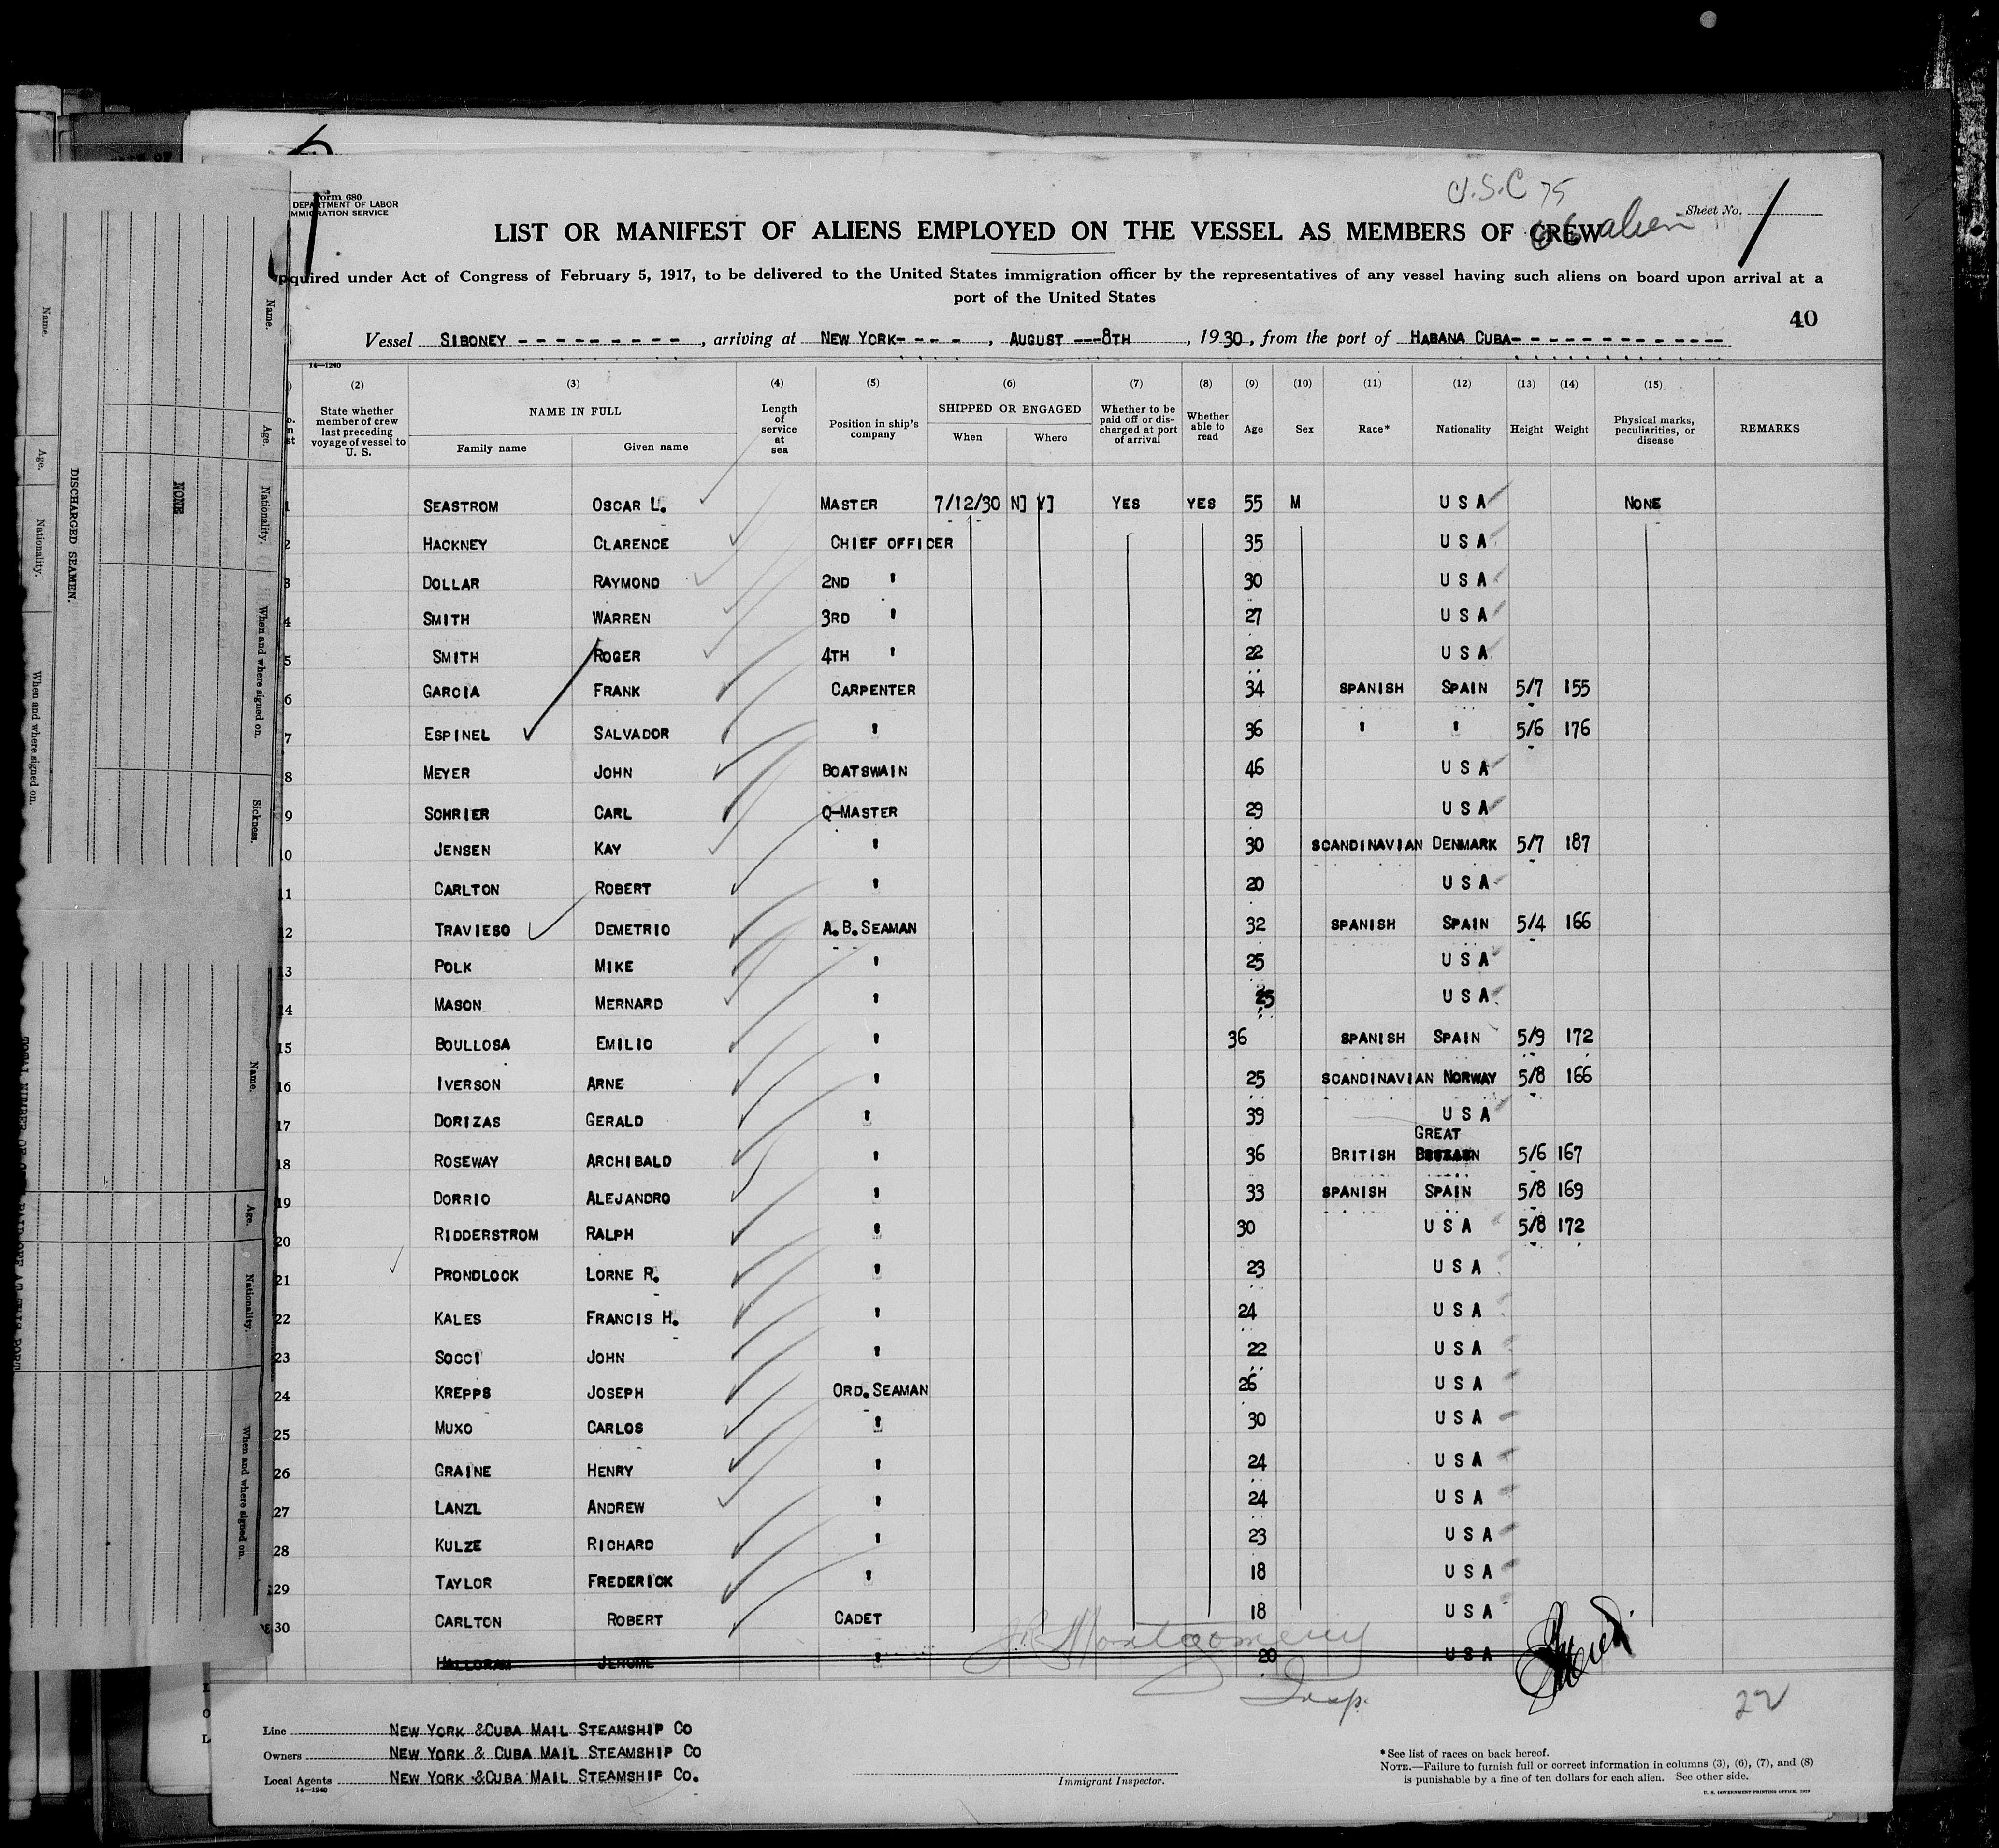 U.S.C 75
66 alien
Form 680
DEPARTMENT OF LABOR
IMMIGRATION SERVICE
Sheet No. 1
LIST OR MANIFEST OF ALIENS EMPLOYED ON THE VESSEL AS MEMBERS OF CREW
quired under Act of Congress of February 5, 1917, to be delivered to the United States immigration officer by the representatives of any vessel having such aliens on board upon arrival at a
port of the United States
40
Vessel SIBONEY - - - - - - - - - , arriving at NEW YORK- - - - , AUGUST ---8TH , 1930, from the port of HABANA CUBA- - - - - - - - - - - - -
14—1240
(2) (3) (4) (5) (6) (7) (8) (9) (10) (11) (12) (13) (14) (15)
State whether member of crew last preceding voyage of vessel to U. S.
NAME IN FULL
Family name Given name
Length of service at sea
Position in ship's company
SHIPPED OR ENGAGED
When Where
Whether to be paid off or discharged at port of arrival
Whether able to read
Age Sex Race* Nationality Height Weight
Physical marks, peculiarities, or disease
REMARKS
1 SEASTROM OSCAR L. MASTER 7/12/30 N] Y] YES YES 55 M U S A NONE
2 HACKNEY CLARENCE CHIEF OFFICER 35 U S A
3 DOLLAR RAYMOND 2ND " 30 U S A
4 SMITH WARREN 3RD " 27 U S A
5 SMITH ROGER 4TH " 22 U S A
6 GARCIA FRANK CARPENTER 34 SPANISH SPAIN 5/7 155
7 ESPINEL SALVADOR " 36 " " 5/6 176
8 MEYER JOHN BOATSWAIN 46 U S A
9 SCHRIER CARL Q-MASTER 29 U S A
10 JENSEN KAY " 30 SCANDINAVIAN DENMARK 5/7 187
11 CARLTON ROBERT " 20 U S A
12 TRAVIESO DEMETRIO A.B.SEAMAN 32 SPANISH SPAIN 5/4 166
13 POLK MIKE " 25 U S A
14 MASON MERNARD " 25 U S A
15 BOULLOSA EMILIO " 36 SPANISH SPAIN 5/9 172
16 IVERSON ARNE " 25 SCANDINAVIAN NORWAY 5/8 166
17 DORIZAS GERALD " 39 U S A
18 ROSEWAY ARCHIBALD " 36 BRITISH GREAT BRITAIN 5/6 167
19 DORRIO ALEJANDRO " 33 SPANISH SPAIN 5/8 169
20 RIDDERSTROM RALPH " 30 U S A 5/8 172
21 PRONDLOCK LORNE R. " 23 U S A
22 KALES FRANCIS H. " 24 U S A
23 SOCCI JOHN " 22 U S A
24 KREPPS JOSEPH ORD.SEAMAN 26 U S A
25 MUXO CARLOS " 30 U S A
26 GRAINE HENRY " 24 U S A
27 LANZL ANDREW " 24 U S A
28 KULZE RICHARD " 23 U S A
29 TAYLOR FREDERICK " 18 U S A
30 CARLTON ROBERT CADET 18 U S A
HALLORAN JEROME " 20 U S A
Montgomery
Insp.
22
Line NEW YORK &CUBA MAIL STEAMSHIP CO
Owners NEW YORK & CUBA MAIL STEAMSHIP CO
Local Agents NEW YORK &CUBA MAIL STEAMSHIP CO.
14—1240
Immigrant Inspector.
*See list of races on back hereof.
NOTE.—Failure to furnish full or correct information in columns (3), (6), (7), and (8)
is punishable by a fine of ten dollars for each alien. See other side.
U. S. GOVERNMENT PRINTING OFFICE. 1929
Name. Age. Nationality. When and where signed on.
DISCHARGED SEAMEN.
NONE
Name. Age. Nationality. When and where signed on. Sickness.
Name. Age. Nationality. When and where signed on.